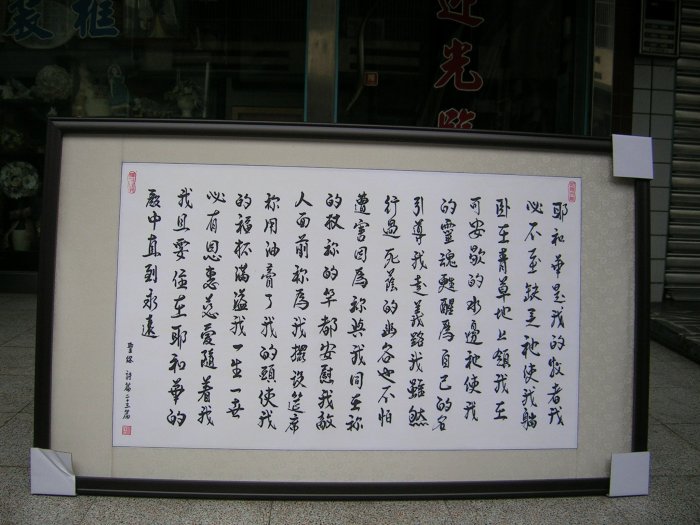 裝框
迎光臨
耶和華是我的牧者我
必不至缺乏祂使我躺
臥在青草地上領我在
可安歇的水邊祂使我
的靈魂甦醒為自己的名
引導我走義路我雖然
行過死蔭的幽谷也不怕
遭害因為祢與我同在祢
的杖祢的竿都安慰我敵
人面前祢為我擺設筵席
祢用油膏了我的頭使我
的福杯滿溢我一生一世
必有恩惠慈愛隨着我
我且要住在耶和華的
殿中直到永遠
聖經 詩篇二三篇